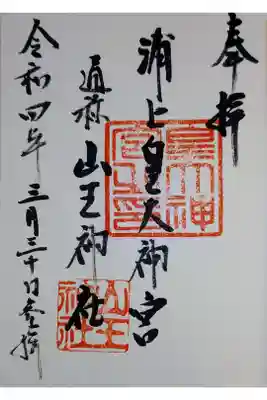 奉拝
浦上皇大神宮
皇大神
宮之印
通称 山王神社
山王
神社
令和四年 三月三十日参拝